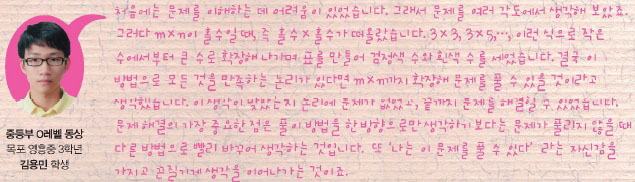 처음에는 문제를 이해하는 데 어려움이 있었습니다. 그래서 문제를 여러 각도에서 생각해 보았죠.
그러다 m×n이 홀수일 때, 즉 홀수×홀수가 떠올랐습니다. 3×3, 3×5,…, 이런 식으로 작은
수에서부터 큰 수로 확장해 나가며 표를 만들어 검정색 수와 흰색 수를 세었습니다. 결국 이
방법으로 모든 것을 만족하는 논리가 있다면 m×n까지 확장해 문제를 풀 수 있을 것이라고
생각했습니다. 이 생각이 맞았는지 논리에 문제가 없었고, 끝까지 문제를 해결할 수 있었습니다.
문제 해결의 가장 중요한 점은 풀이 방법을 한 방향으로만 생각하기 보다는 문제가 풀리지 않을 때
다른 방법으로 빨리 바꾸어 생각하는 것입니다. 또 ‘나는 이 문제를 풀 수 있다’ 라는 자신감을
가지고 끈질기게 생각을 이어나가는 것이죠.
중등부 O레벨 동상
목포 영흥중 3학년
김용민 학생